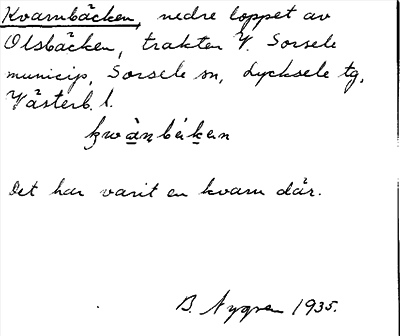 Kvarnbäcken, nedre loppet av
Olsbäcken, trakten V. Sorsele
municip, Sorsele sn, Lycksele tg,
Västerb. l.
kwàṇbäken
Det har varit en kvarn där.
B. Nygren 1935.